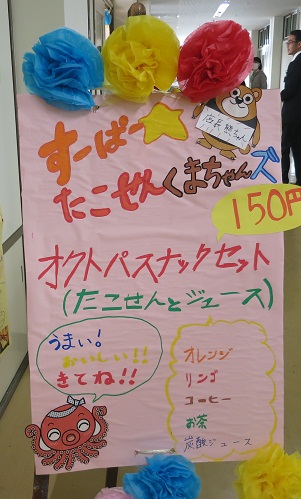 すーぱー☆
店長 熊ちゃん
たこせんくまちゃんズ
150円
オクトパスナックセット
(たこせんとジュース)
うまい!
おいしい!!
きてね!!
オレンジ
リンゴ
コーヒー
お茶
炭酸ジュース